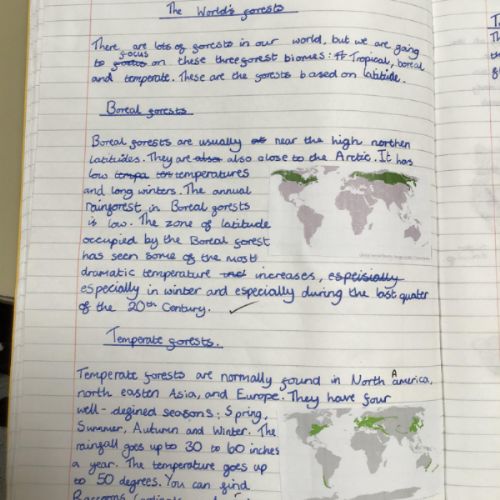 The World's forests
There are lots of forests in our world, but we are going
to focus on these three forest biomes: Tropical, boreal
and temperate. These are the forests based on latitude.
Boreal forests
Boreal forests are usually near the high northen
latitudes. They are also also close to the Arctic. It has
low temperatures
and long winters. The annual
rainforest in Boreal forests
is low. The zone of latitude
occupied by the Boreal forest
has seen some of the most
dramatic temperature increases, espeisially
especially in winter and especially during the last quater
of the 20th Century.
Temperate forests.
Temperate forests are normally found in North America,
north eastern Asia, and Europe. They have four
well-defined seasons: Spring,
Summer, Autumn and Winter. The
rainfall goes up to 30 to 60 inches
a year. The temperature goes up
to 50 degrees. You can find
Raccoons